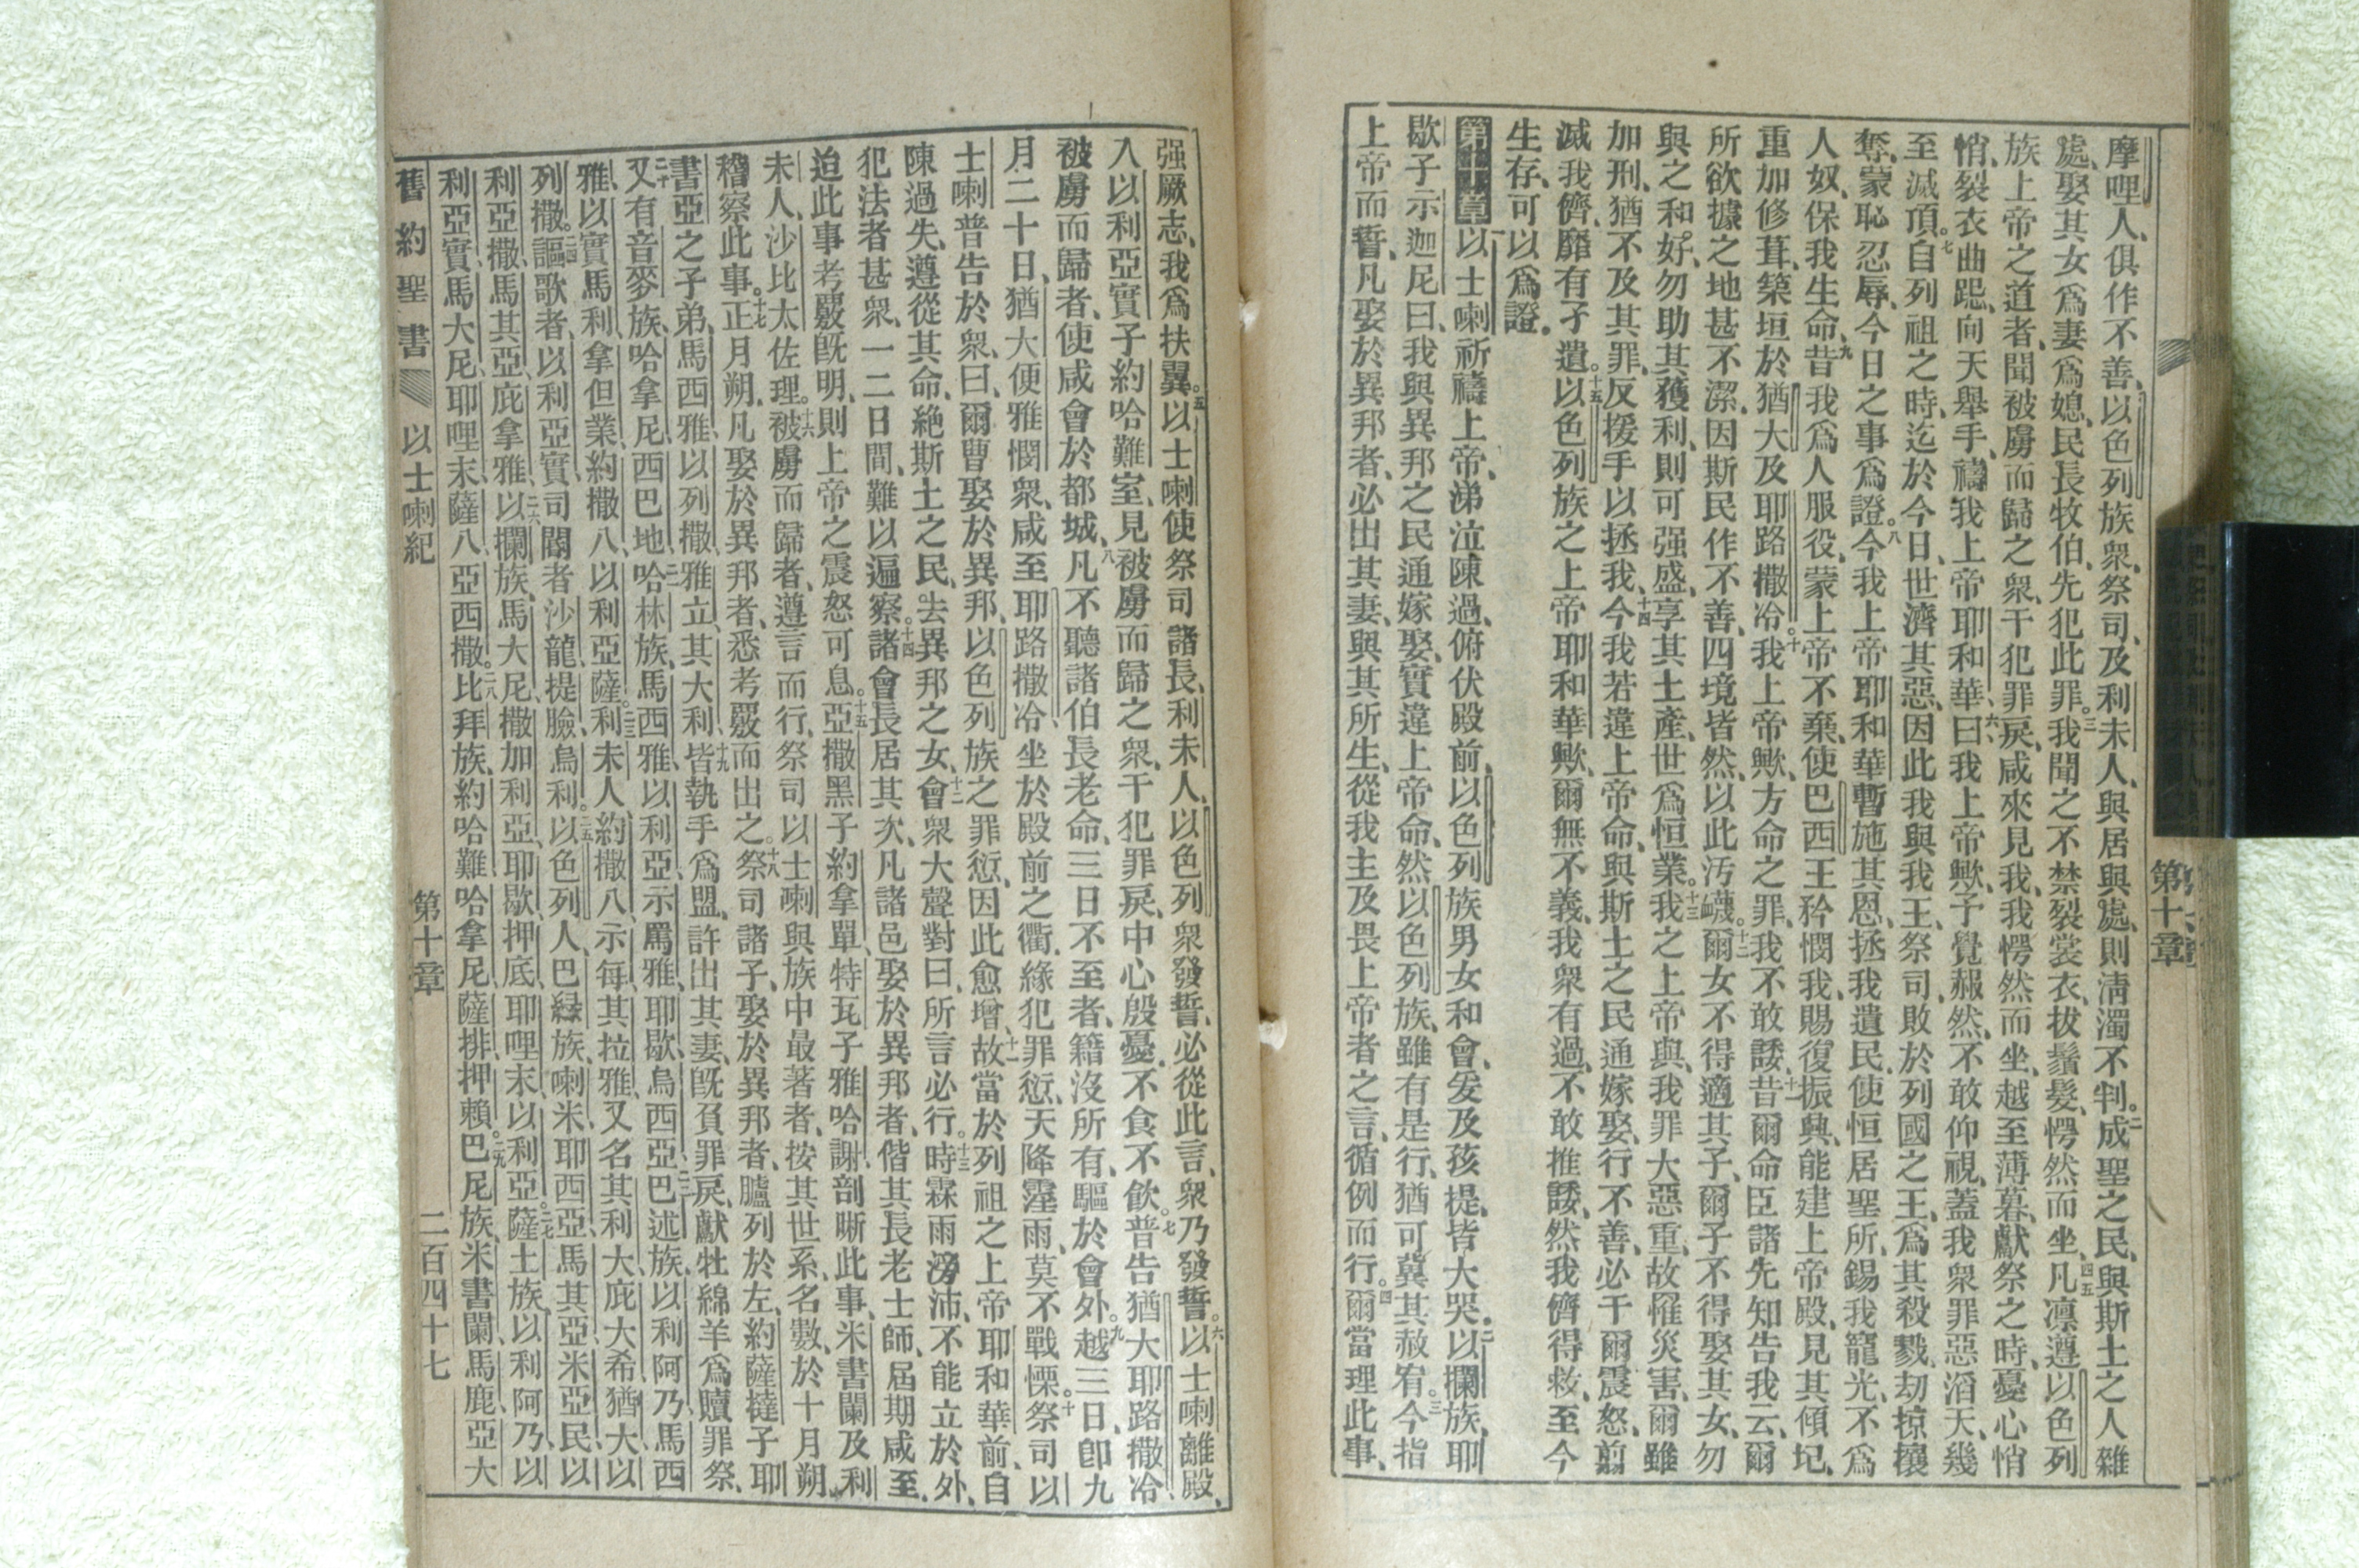 摩哩人、俱作不善、以色列族衆、祭司、及利未人、與居與處、則淸濁不判。二成聖之民、與斯土之人雜
處、娶其女爲妻爲媳、民長牧伯、先犯此罪。三我聞之不禁裂裳衣、拔鬚髮、愕然而坐、四凡凛遵以色列
族上帝之道者、聞被虜而歸之衆、干犯罪戾、咸來見我、我愕然而坐、越至薄暮、五獻祭之時、憂心悄
悄、裂衣曲跽、向天舉手、禱我上帝耶和華六曰、我上帝歟、予覺赧然、不敢仰視、蓋我衆罪惡滔天、幾
至滅頂。七自列祖之時、迄於今日、世濟其惡、因此我與我王、祭司、敗於列國之王、爲其殺戮、刧掠攘
奪、蒙恥忍辱、今日之事爲證。八今我上帝耶和華暫施其恩、拯我遺民、使恒居聖所、錫我寵光、不爲
人奴、保我生命、九昔我爲人服役、蒙上帝不棄、使巴西王矜憫我、賜復振興、能建上帝殿、見其傾圮、
重加修葺、築垣於猶大及耶路撒冷。十我上帝歟、方命之罪、我不敢諉、十一昔爾命臣諸先知告我云、爾
所欲據之地甚不潔、因斯民作不善、四境皆然、以此汚衊。十二爾女不得適其子、爾子不得娶其女、勿
與之和好、勿助其獲利、則可强盛、享其土產、世爲恒業。十三我之上帝與、我罪大惡重、故罹災害、爾雖
加刑、猶不及其罪、反援手以拯我、十四今我若違上帝命、與斯土之民通嫁娶、行不善、必干爾震怒、翦
滅我儕、靡有孑遺。十五以色列族之上帝耶和華歟、爾無不義、我衆有過、不敢推諉、然我儕得救、至今
生存、可以爲證。
第十章 一以士喇祈禱上帝、涕泣陳過、俯伏殿前、以色列族男女和會、爰及孩提、皆大哭。二以攔族、耶
歇子示迦尼曰、我與異邦之民通嫁娶、實違上帝命、然以色列族、雖有是行、猶可冀其赦宥。三今指
上帝而誓、凡娶於異邦者、必出其妻、與其所生、從我主及畏上帝者之言、循例而行。四爾當理此事、
第十章
强厥志、我爲扶翼。五以士喇使祭司諸長、利未人、以色列衆發誓、必從此言、衆乃發誓。六以士喇離殿、
入以利亞實子約哈難室、見被虜而歸之衆、干犯罪戾、中心殷憂、不食不飮。七普告猶大耶路撒冷、
被虜而歸者、使咸會於都城、八凡不聽諸伯長老命、三日不至者、籍沒所有、驅於會外。九越三日、卽九
月二十日、猶大便雅憫衆、咸至耶路撒冷、坐於殿前之衢、緣犯罪愆、天降霪雨、莫不戰慄。十祭司以
士喇普告於衆、曰、爾曹娶於異邦、以色列族之罪愆、因此愈增、十一故當於列祖之上帝耶和華前、自
陳過失、遵從其命、絶斯土之民、去異邦之女、十二會衆大聲對曰、所言必行。十三時霖雨滂沛、不能立於外、
犯法者甚衆、一二日間、難以遍察。十四諸會長居其次、凡諸邑娶於異邦者、偕其長老士師、屆期咸至、
迨此事考覈旣明、則上帝之震怒可息。十五亞撒黑子約拿單、特瓦子雅哈謝、剖晰此事、米書蘭及利
未人、沙比太佐理。十六被虜而歸者、遵言而行、祭司以士喇與族中最著者、按其世系、名數、於十月朔、
稽察此事。十七正月朔、凡娶於異邦者、悉考覈而出之。十八祭司諸子、娶於異邦者、臚列於左、約薩撻子耶
書亞之子弟、馬西雅、以列撒、雅立、其大利、十九皆執手爲盟、許出其妻、旣負罪戾、獻牡綿羊爲贖罪祭、
二十又有音麥族、哈拿尼、西巴地、二一哈林族、馬西雅、以利亞、示罵雅、耶歇、烏西亞、二二巴述族、以利阿乃、馬西
雅、以實馬利、拿但業、約撒八、以利亞薩。二三利未人、約撒八、示每、其拉雅、又名其利大、庇大希、猶大、以
列撒。二四謳歌者、以利亞實、司閽者、沙龍、提臉、烏利。二五以色列人、巴綠族、喇米、耶西亞、馬其亞、米亞民、以
利亞撒、馬其亞、庇拿雅、二六以攔族、馬大尼、撒加利亞、耶歇、押底、耶哩末、以利亞。二七薩土族、以利阿乃、以
利亞實、馬大尼、耶哩末、薩八、亞西撒。二八比拜族、約哈難、哈拿尼、薩排、押賴。二九巴尼族、米書蘭、馬鹿、亞大
舊約聖書 以士喇紀 第十章 二百四十七